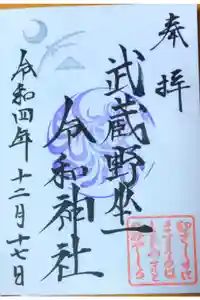 奉拝
武蔵野坐
令和神社
令和四年十二月十七日